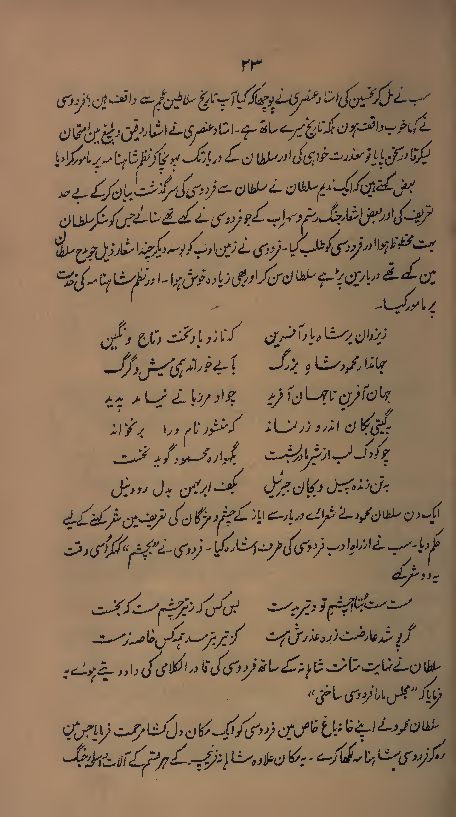 ۲۳
سب نے مل کر تحسین کی استاد عنصری نے پوچھا کہ کیا آپ تاریخ سلاطین عجم سے واقف ہین؟ فردوسی
نے کہا خوب واقف ہون بلکہ تاریخ میرے ساتھ ہے۔ استاد عنصری نے اشعار دقیق و بلیغ مین امتحان
لیکر قادر سخن پایا تو معذرت خواہی کی اور سلطان کے دربار تک پہونچا کر نظم شاہنامہ پر مامور کرا دیا
بعض کہتے ہین کہ ایک ندیم سلطان نے سلطان سے فردوسی کی سرگذشت بیان کر کے بے حد
تعریف کی اور بعض اشعار جنگ رستم و سہراب کے جو فردوسی نے کہے تھے سنائے جس کو سنکر سلطان
بہت محظوظ ہوا اور فردوسی کو طلب کیا۔ فردوسی نے زمین ادب کو بوسہ دیکر چند اشعار ذیل جو مدح سلطان
مین کہے تھے دربار مین پڑہے سلطان سن کر اور بھی زیادہ خوش ہوا۔ اور نظم شاہنامہ کی خدمت
پر مامور کیا۔
زیزدان بر شاہ باد آفرین کہ نازد باو تخت و تاج و نگین
جہاندار محمود شاہ بزرگ بآبشخور آرد ہمی میش و گرگ
جہان آفرین تا جہان آفرید چو او مرزبانے نیامد پدید
بگیتی بکان اندرون زر نماند کہ منشور نام ورا برنخواند
چو کودک لب از شیر مادر بشست بگہوارہ محمود گوید نخست
بتن زندہ پیل و بجان جبرئیل بکف ابر بہمن بدل رود نیل
ایک دن سلطان محمود نے شعرائے دربار سے ایاز کے چشم و مژگان کی تعریف مین شعر کہنے کے لیے
حکم دیا۔ سب نے از راہ ادب فردوسی کی طرف اشارہ کیا۔ فردوسی نے "بچشم" کہکر اُسی وقت
یہ دو شعر کہے
مست ست بتا چشم تو و تیر بدست بس کس کہ ز تیر چشم مست تو بخست
گر پوشد عارضت زرہ عذرش ہست کز تیر بترسد ہمہ کس خاصہ ز مست
سلطان نے نہایت متانت شاہانہ کے ساتھ فردوسی کی قادر الکلامی کی داد دیتے ہوے یہ
فرمایا کہ "مجلس مارا فردوس ساختی"
سلطان محمود نے اپنے خانہ باغ خاص مین فردوسی کو ایک مکان دل کشا مرحمت فرمایا جس مین
رہ کر فردوسی شاہنامہ لکھا کرے۔ یہ مکان علاوہ شاہانہ فرنیچر کے ہر قسم کے آلات و اسلحہ جنگ